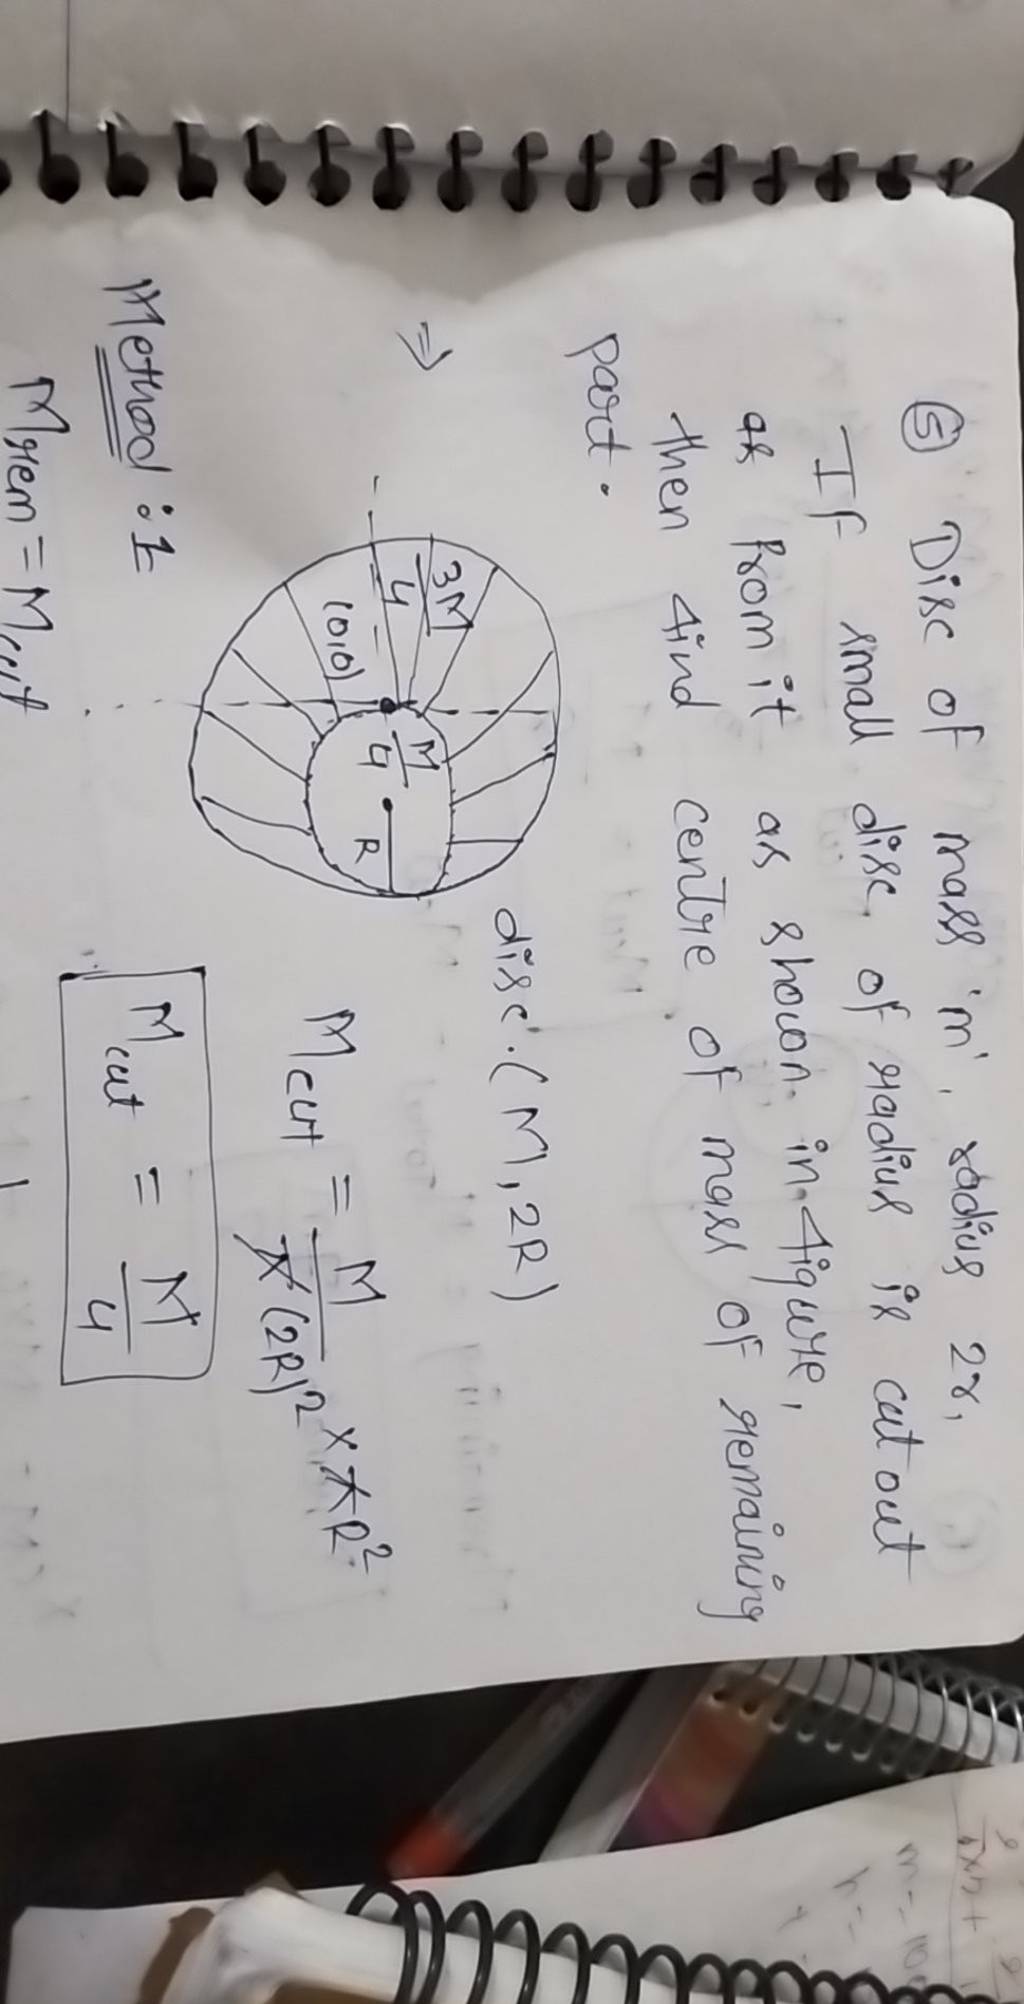 ⑤ Disc of mass 'm', radius 2r,
If small disc of radius is cut out
as from it as shown in figure,
then find centre of mass of remaining
part.
disc. (M, 2R)
⇒
3M/4
(0,0)
M/4
R
M cut = M/π(2R)² × πR²
M cut = M/4
Method : 1
M rem = M cut